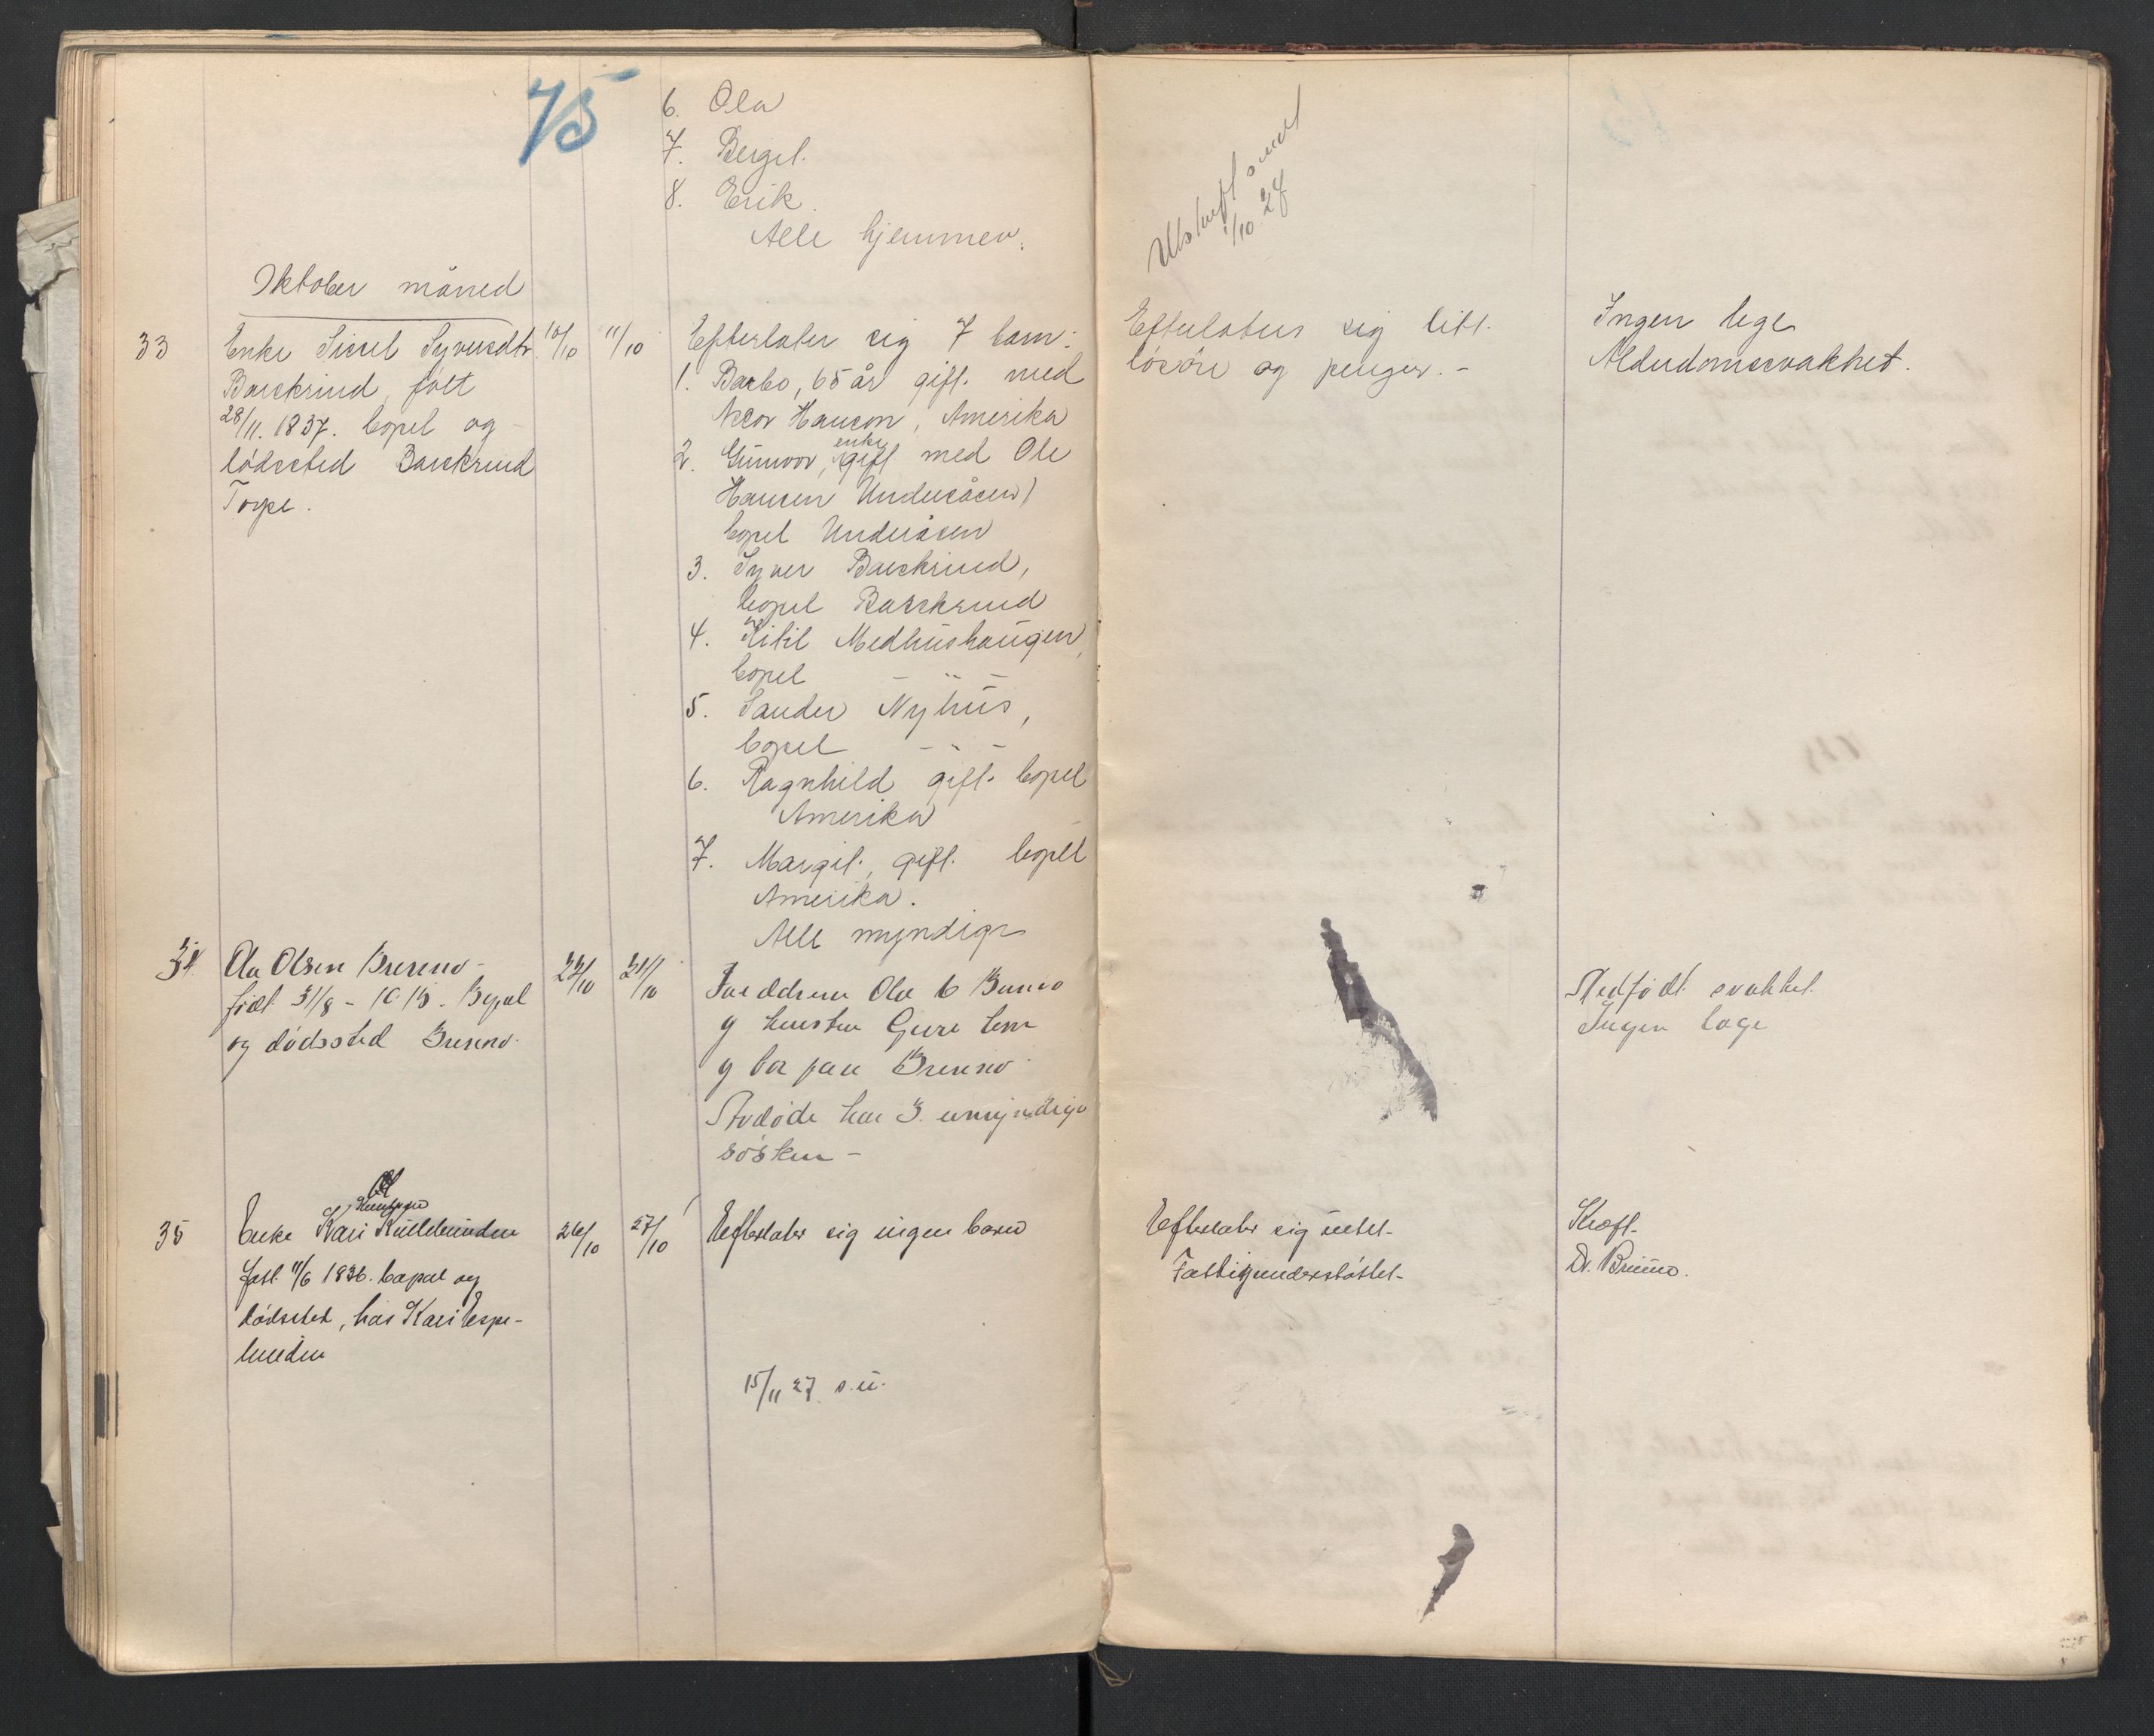 75
6. Ola
7. Bergit.
8. Erik.
Alle hjemmev.
Oktober måned
33
Enke Sissel Syversdtr.
Baeskrud, født
28/11. 1837. bopel og
dødssted Baeskrud
Torpe.
10/10
11/10
Efterlater sig 7 barn:
1. Barbo, 65 år gift. med
Hanson, Amerika
2. Gunvor, enke gift med Ole
Hansen Underåsen)
bopel Underåsen
3. Syver Baeskrud,
bopel Baeskrud
4. Kitil Medhushaugen,
bopel — " —
5. Sander Nyhus,
bopel — " —
6. Ragnhild gift. bopel
Amerika
7. Margit, gift. bopel
Amerika.
Alle myndige
Utskrift sendt
1/10 27
Efterlater sig litt
løsøre og penger. -
Ingen lege
Alderdomssvakhet.
34
Ola Olsen Brenno -
født 31/8 - 1913. Bopel
og dødssted Brenno.
22/10
31/10
Foreldrene Ola O Brenno
og hustru Guri
og bor paa Brenno
Avdøde har 3 umyndige
søsken -
Medfødt svakhet.
Ingen lege
35
Enke Kari Knutsdtr.
født 11/6 1836. bopæl og
dødssted, hos Kari Espe-
lunden
26/10
27/10
Efterlater sig ingen barn
15/11 27 s.u.
Efterlater sig intet-
Fattigunderstøttet-
Kræft.
Dr. Bruno.